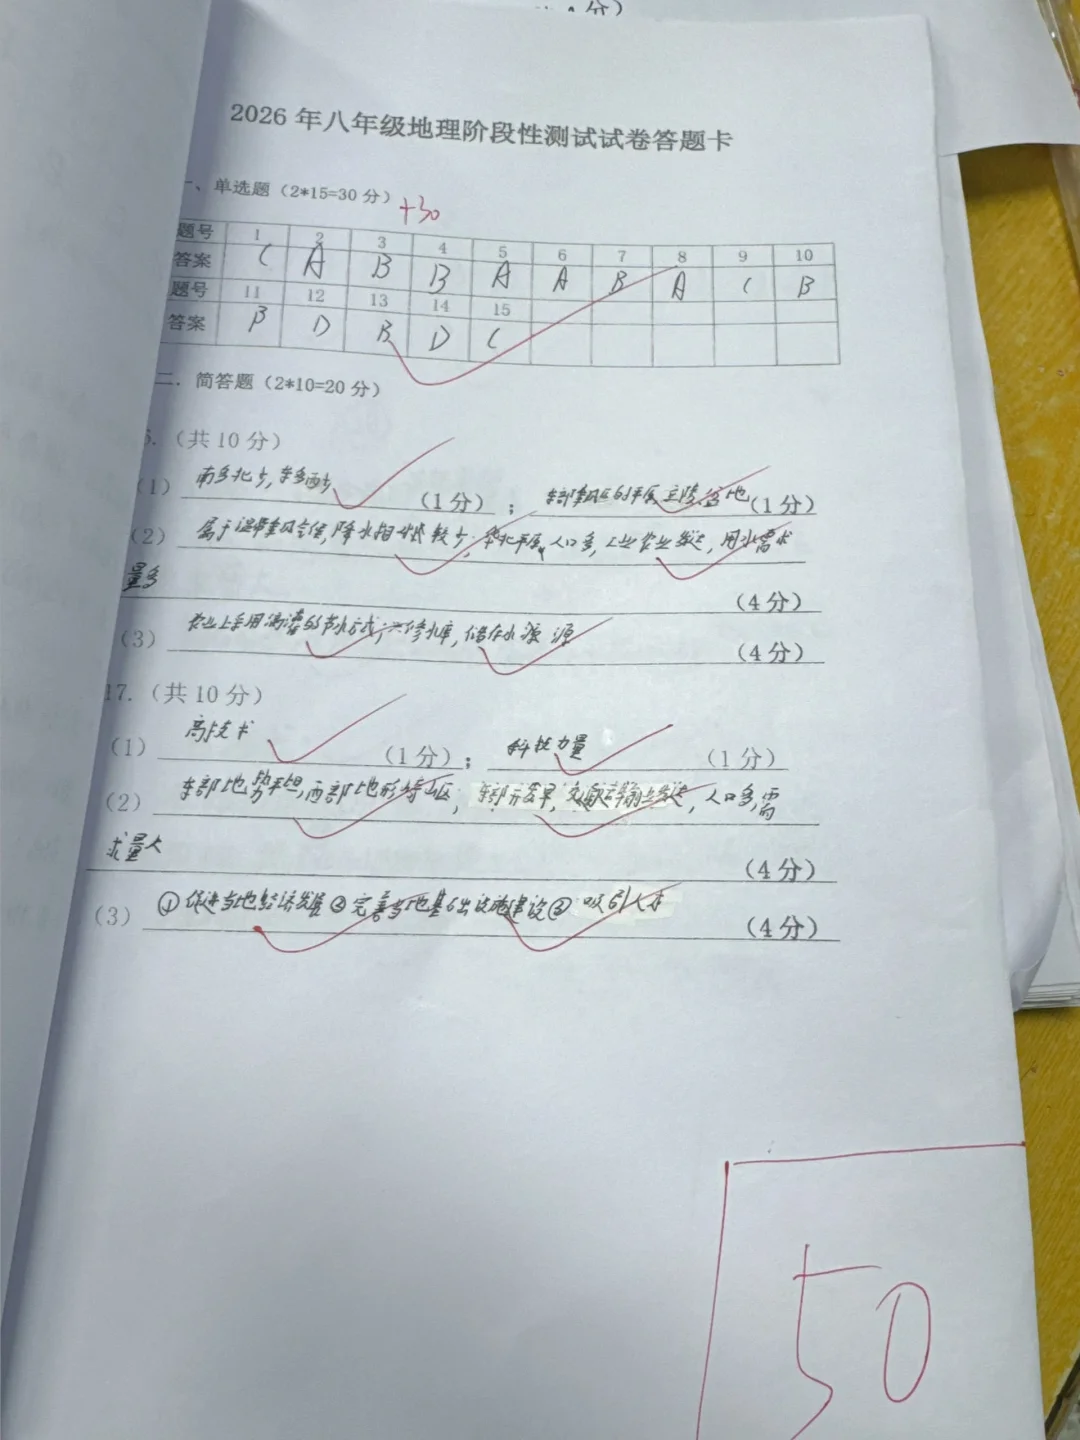 分）
2026年八年级地理阶段性测试试卷答题卡
一、单选题（2*15=30分） +30
题号 1 2 3 4 5 6 7 8 9 10
答案 C A B B A A B A C B
题号 11 12 13 14 15
答案 B D B D C
二. 简答题（2*10=20分）
6.（共10分）
（1） 南多北少,东多西少 （1分）； 东部季风区的平原,丘陵,盆地 （1分）
（2） 属于温带季风气候,降水相对较少；华北平原,人口多,工业农业发达,用水需求
量多 （4分）
（3） 农业上采用滴灌的节水方式； 修水库,储存水源 源 （4分）
17.（共10分）
（1） 高技术 （1分）； 科技力量 （1分）
（2） 东部地势平坦,西部地形 山区； 东部开发早,交通运输业发达,人口多,需
求量大 （4分）
（3） ①促进当地经济发展②完善当地基础设施建设③ 吸引人才 （4分）
50